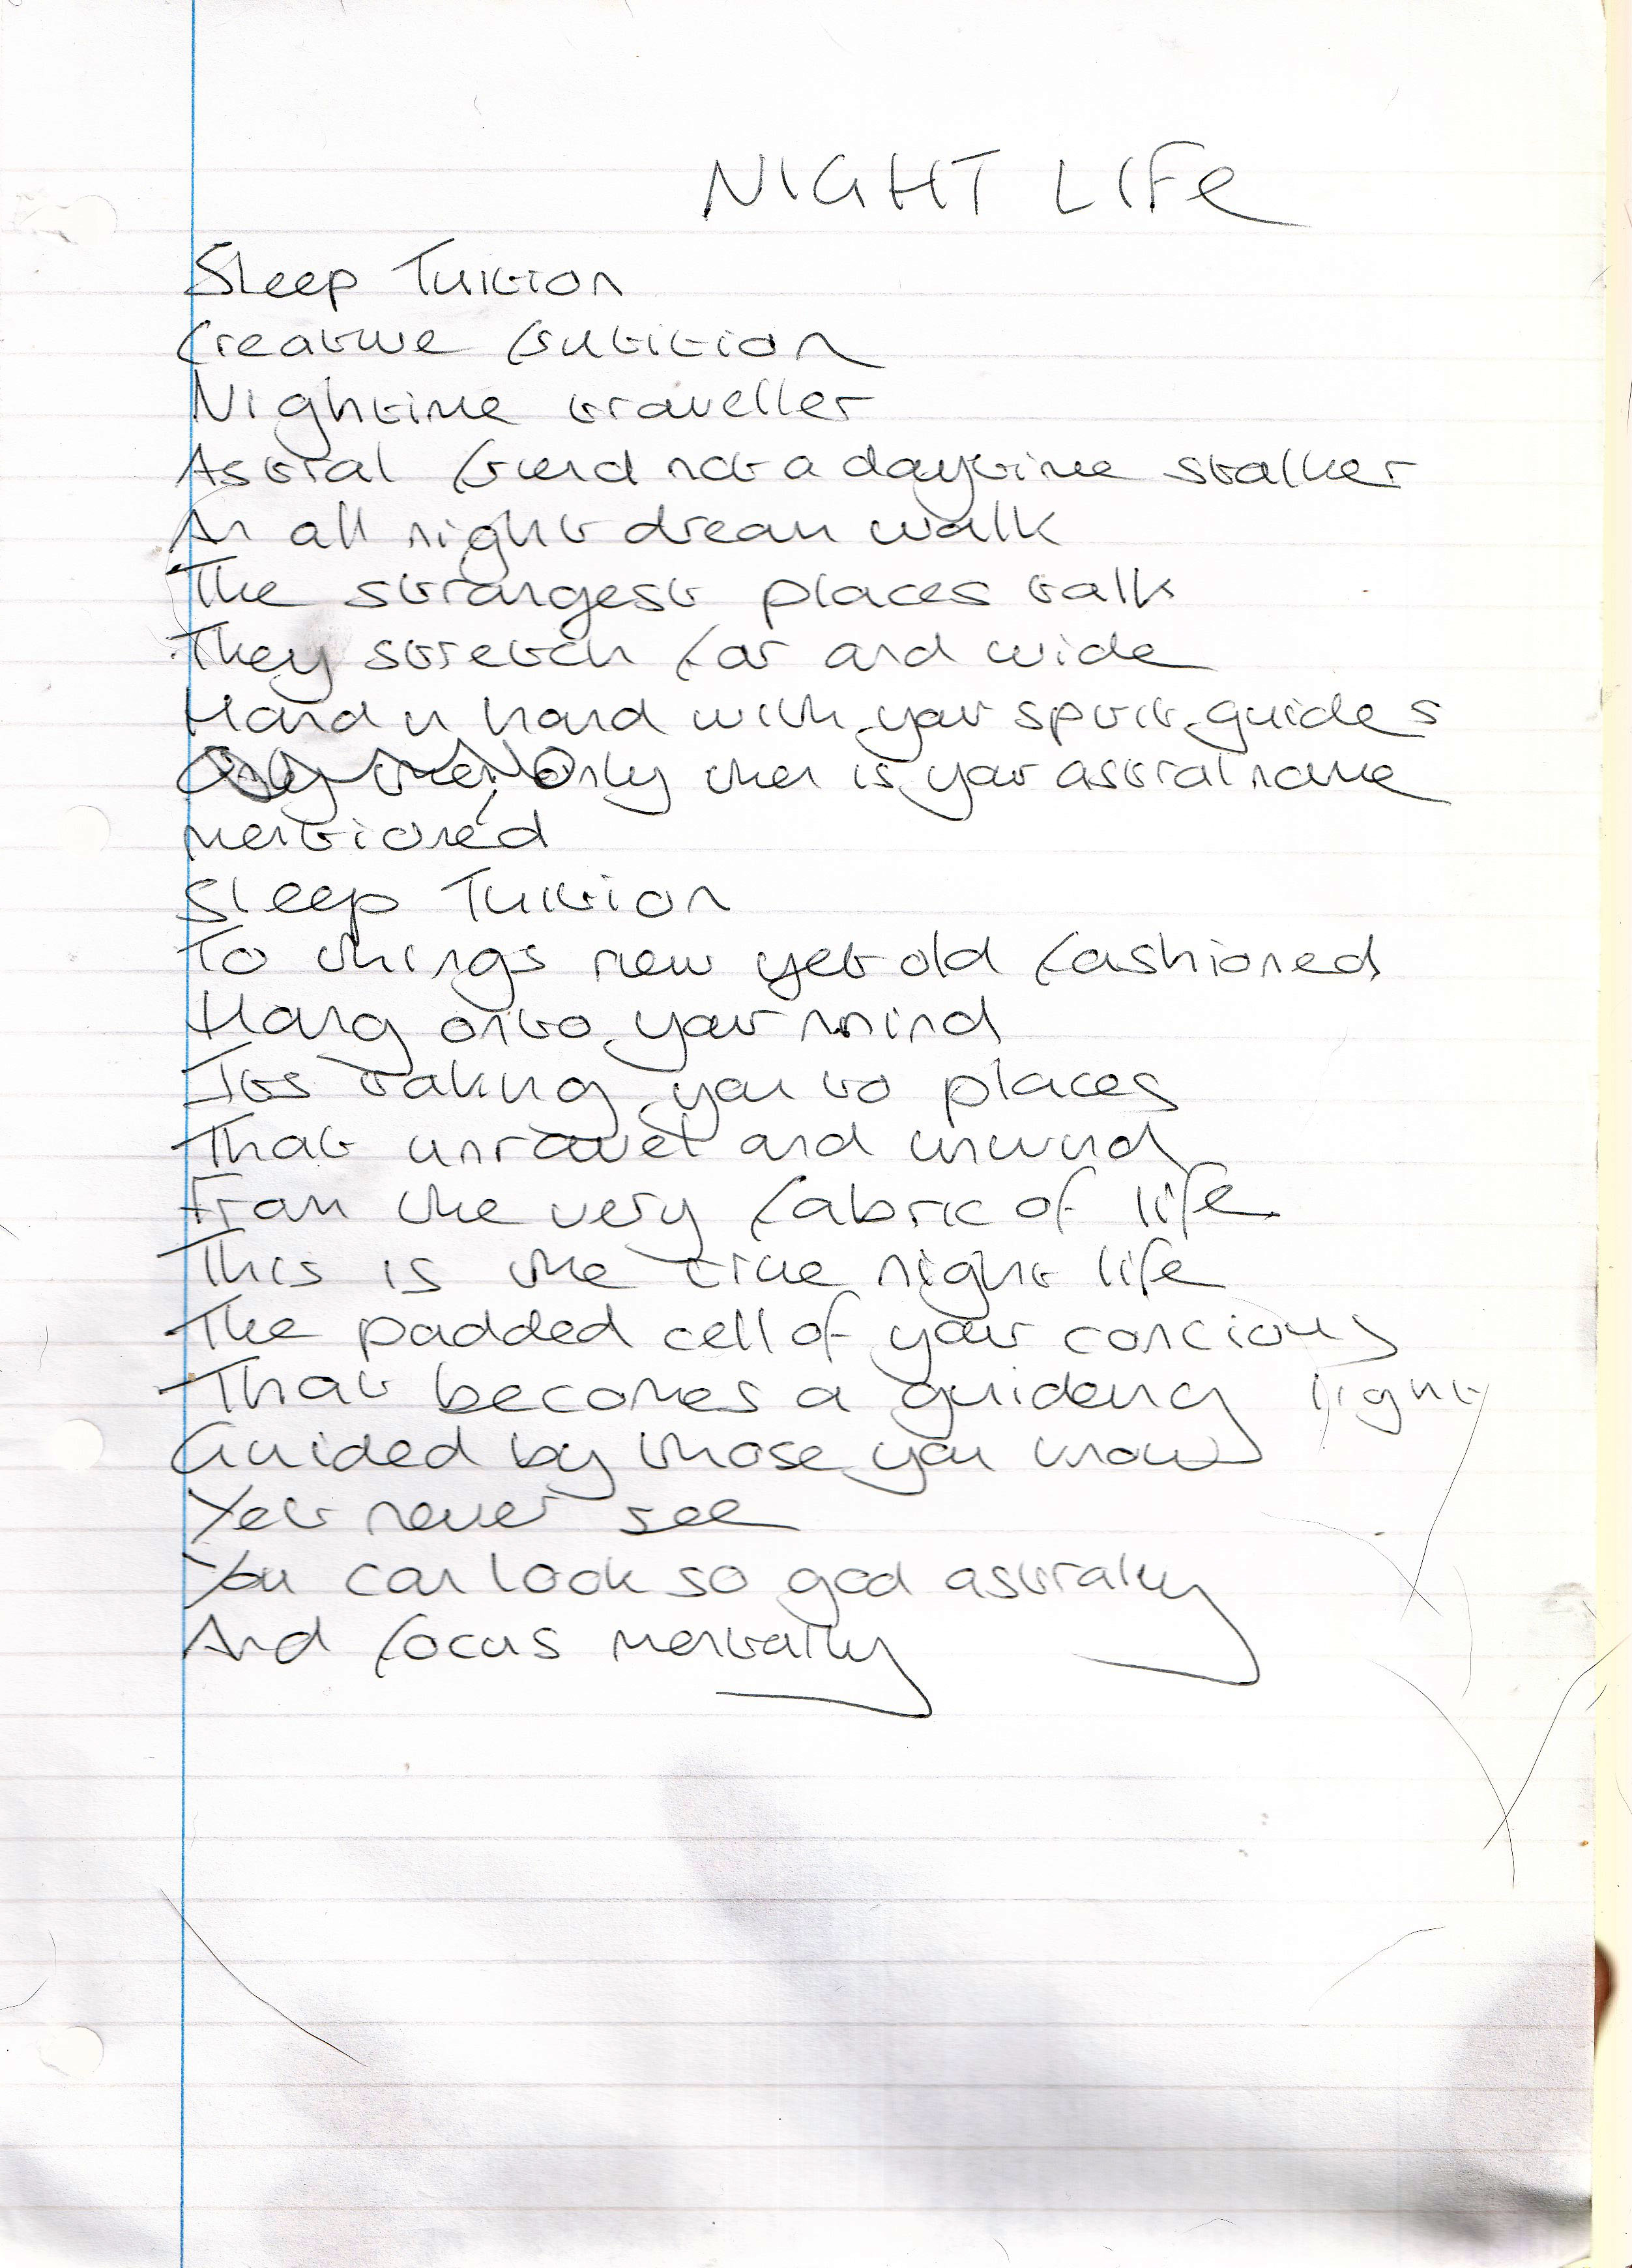 NIGHT LIFE
Sleep Tuition
Creative fruition
Nightime traveller
Astral friend not a daytime stalker
An all night dream walk
The strangest places talk
They stretch far and wide
Hand n hand with your spirit guides
Only then is your astral name
mentioned
Sleep Tuition
To things new yet old fashioned
Hang onto your mind
Its taking you to places
That unravel and unwind
From the very fabric of life
This is the true night life
The padded cell of your concious
That becomes a guideing light
Guided by those you know
Yet never see
You can look so good astrally
And focus mentally